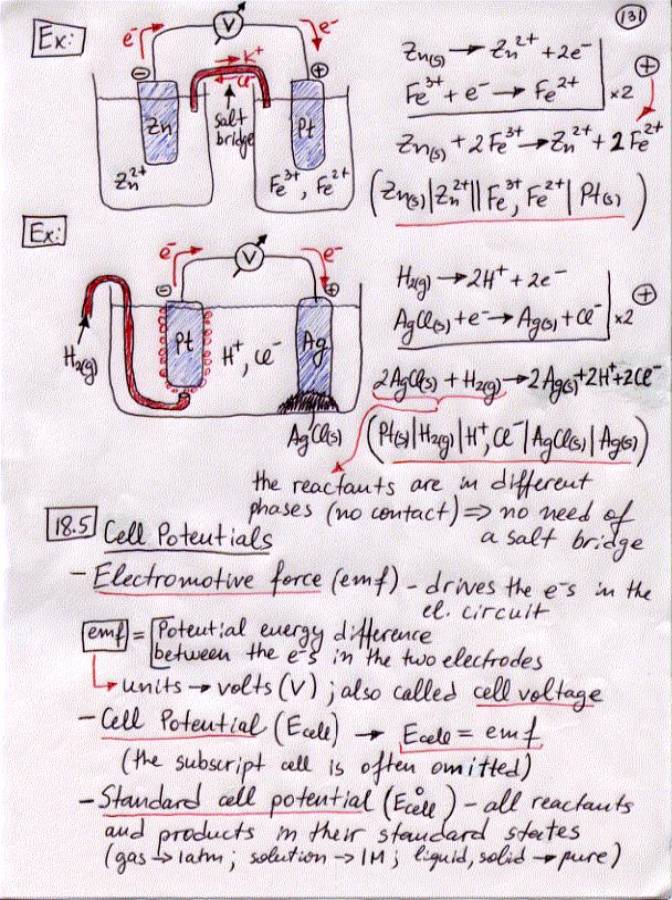 131
Ex:
e⁻ V e⁻
⊖ K⁺ ⊕
Cl⁻
Zn salt bridge Pt
Zn²⁺ Fe³⁺, Fe²⁺
Zn(s) → Zn²⁺ + 2e⁻
Fe³⁺ + e⁻ → Fe²⁺ | x2 ⊕
Zn(s) + 2Fe³⁺ → Zn²⁺ + 2Fe²⁺
(Zn(s)|Zn²⁺||Fe³⁺, Fe²⁺|Pt(s))
Ex:
e⁻ V e⁻
⊖ ⊕
Pt H⁺, Cl⁻ Ag
H₂(g)
AgCl(s)
H₂(g) → 2H⁺ + 2e⁻
AgCl(s) + e⁻ → Ag(s) + Cl⁻ | x2 ⊕
2AgCl(s) + H₂(g) → 2Ag(s) + 2H⁺ + 2Cl⁻
(Pt(s)|H₂(g)|H⁺, Cl⁻|AgCl(s)|Ag(s))
the reactants are in different
phases (no contact) ⇒ no need of
a salt bridge
18.5 Cell Potentials
- Electromotive force (emf) - drives the e⁻s in the
el. circuit
emf = Potential energy difference
between the e⁻s in the two electrodes
↳ units → volts (V) ; also called cell voltage
- Cell Potential (Ecell) → Ecell = emf
(the subscript cell is often omitted)
- Standard cell potential (E°cell) - all reactants
and products in their standard states
(gas → 1atm ; solution → 1M ; liquid, solid → pure)